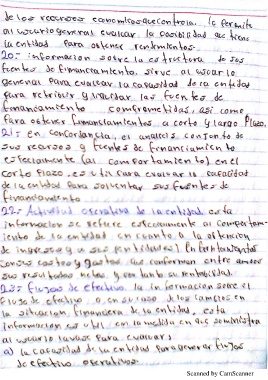 de los recursos economicos que controla, le permite
al usuario general evaluar la posibilidad que tiene
la entidad para obtener rendimientos.
20.- informacion sobre la estructura de sus
fuentes de financiamiento, sirve al usuario
general para evaluar la capacidad de la entidad
para retribuir y liquidar las fuentes de
financiamiento comprometidas, así como
para obtener financiamientos a corto y largo Plazo.
21.- en concordancia, el analisis conjunto de
sus recursos y fuentes de financiamiento
especialmente (al comportamiento) en el
corto Plazo, es util para evaluar la capacidad
de la entidad para solventar sus fuentes de
financiamiento
22.- Actividad operativa de la entidad. esta
informacion se refiere esencialmente al comporta-
miento de la entidad en cuanto a la obtencion
de ingresos y a sus rentabilidad
con sus costos y gastos que conforman entre ambos
sus resultados netos y por tanto su rentabilidad.
23.- flujos de efectivo. la informacion sobre el
flujo de efectivo o, en su caso de los cambios en
la situacion financiera de la entidad, esta
informacion es util en la medida en que suministra
al usuario bases Para evaluar:
a) la capacidad de la entidad para generar flujos
de efectivo operativos.
Scanned by CamScanner